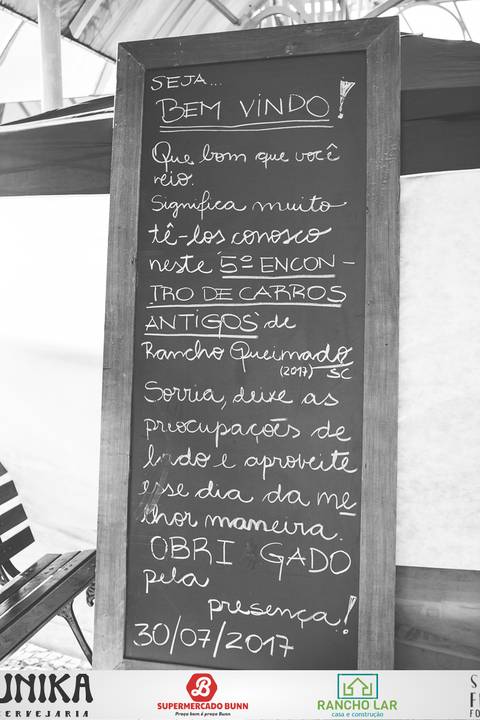 SEJA...
BEM VINDO!
Que bom que você
veio.
Significa muito
tê-los conosco
neste 5º ENCON-
TRO DE CARROS
ANTIGOS de
Rancho Queimado
(2017) SC
Sorria, deixe as
preocupações de
lado e aproveite
esse dia da me
lhor maneira.
OBRI GADO
pela
presença!
30/07/2017
UNIKA
CERVEJARIA
B
SUPERMERCADO BUNN
Preço bom é preço Bunn
RANCHO LAR
casa e construção